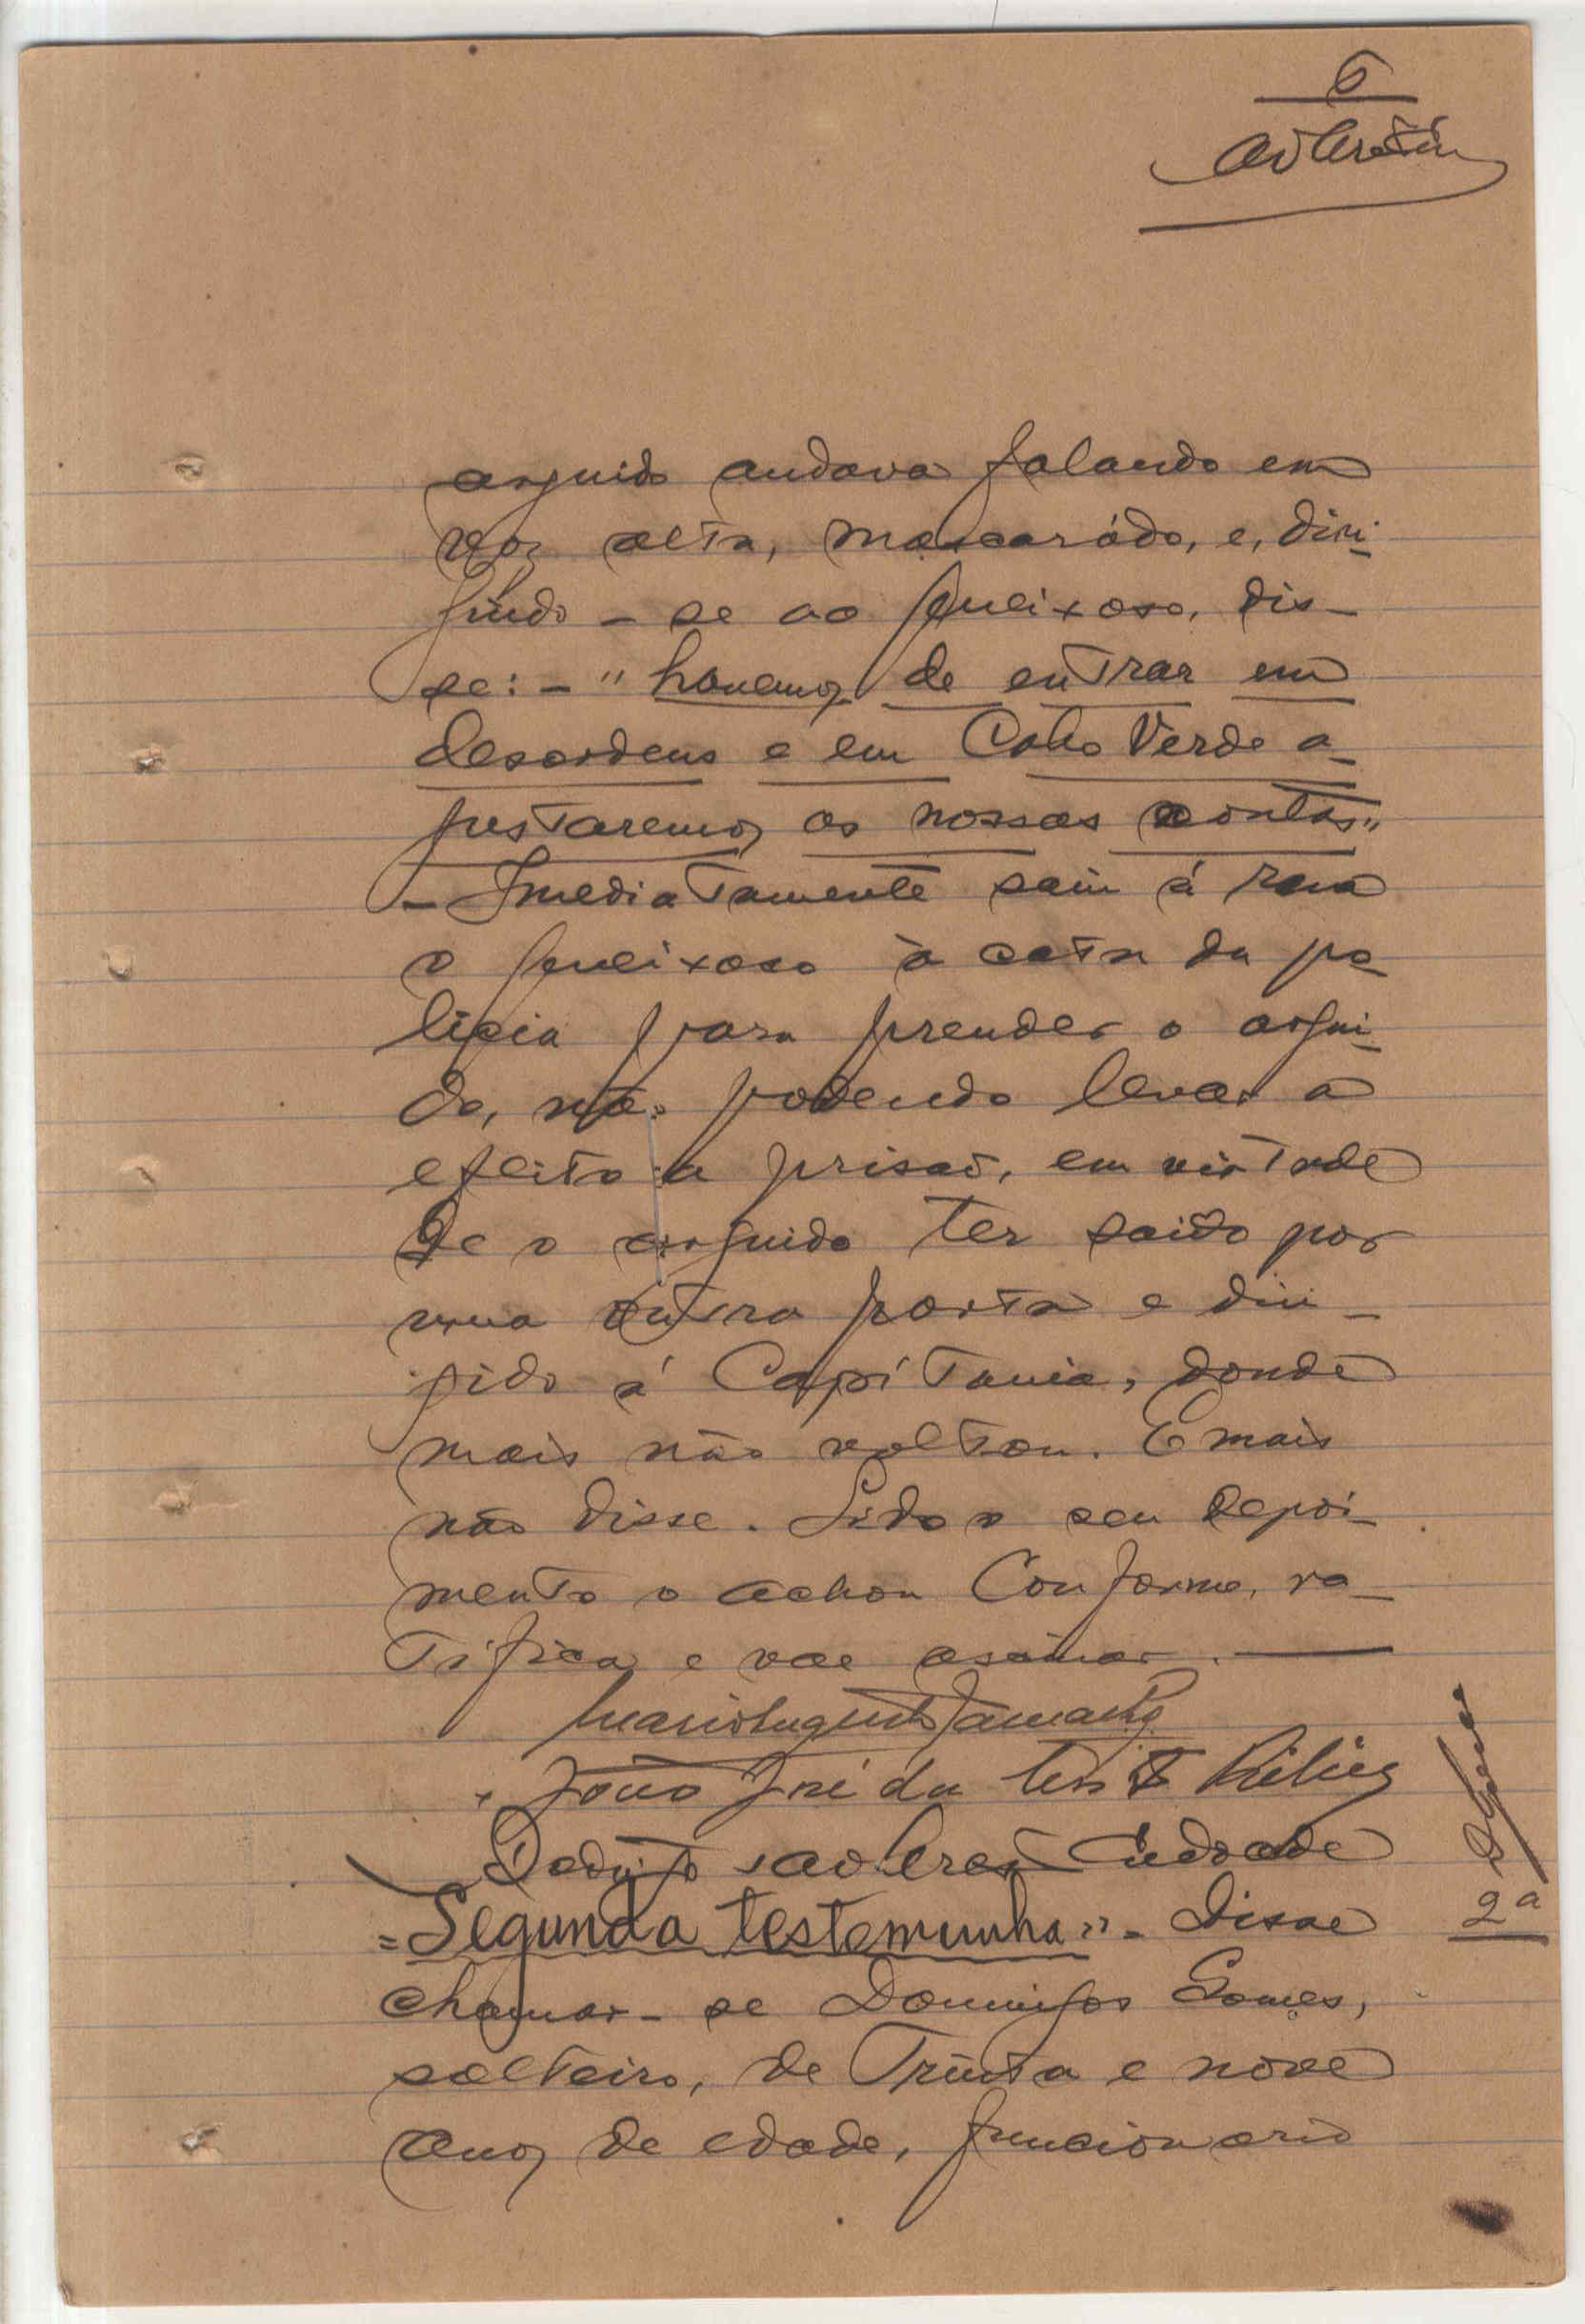 6
arguido andava falando em
voz alta, mascarádo, e, diri-
gindo-se ao queixoso, dis-
se: - "havemos de entrar em
desordens e em Cabo Verde a-
justaremos as nossas contas"
- Imediatamente saiu á rua
o queixoso à cata da po-
licia para prender o argui-
do, não podendo levar a
efeito a prisão, em virtude
de o arguido ter saido por
uma outra porta e diri-
gido á Capitania, donde
mais não voltou. E mais
não disse. Lido o seu depoi-
mento o achou conforme, ra-
tifica e vae assinar.
João José da
Andrade
=Segunda testemunha"- Disse
2ª
chamar-se Domingos Gomes,
solteiro, de trinta e nove
anos de edade, funcionario